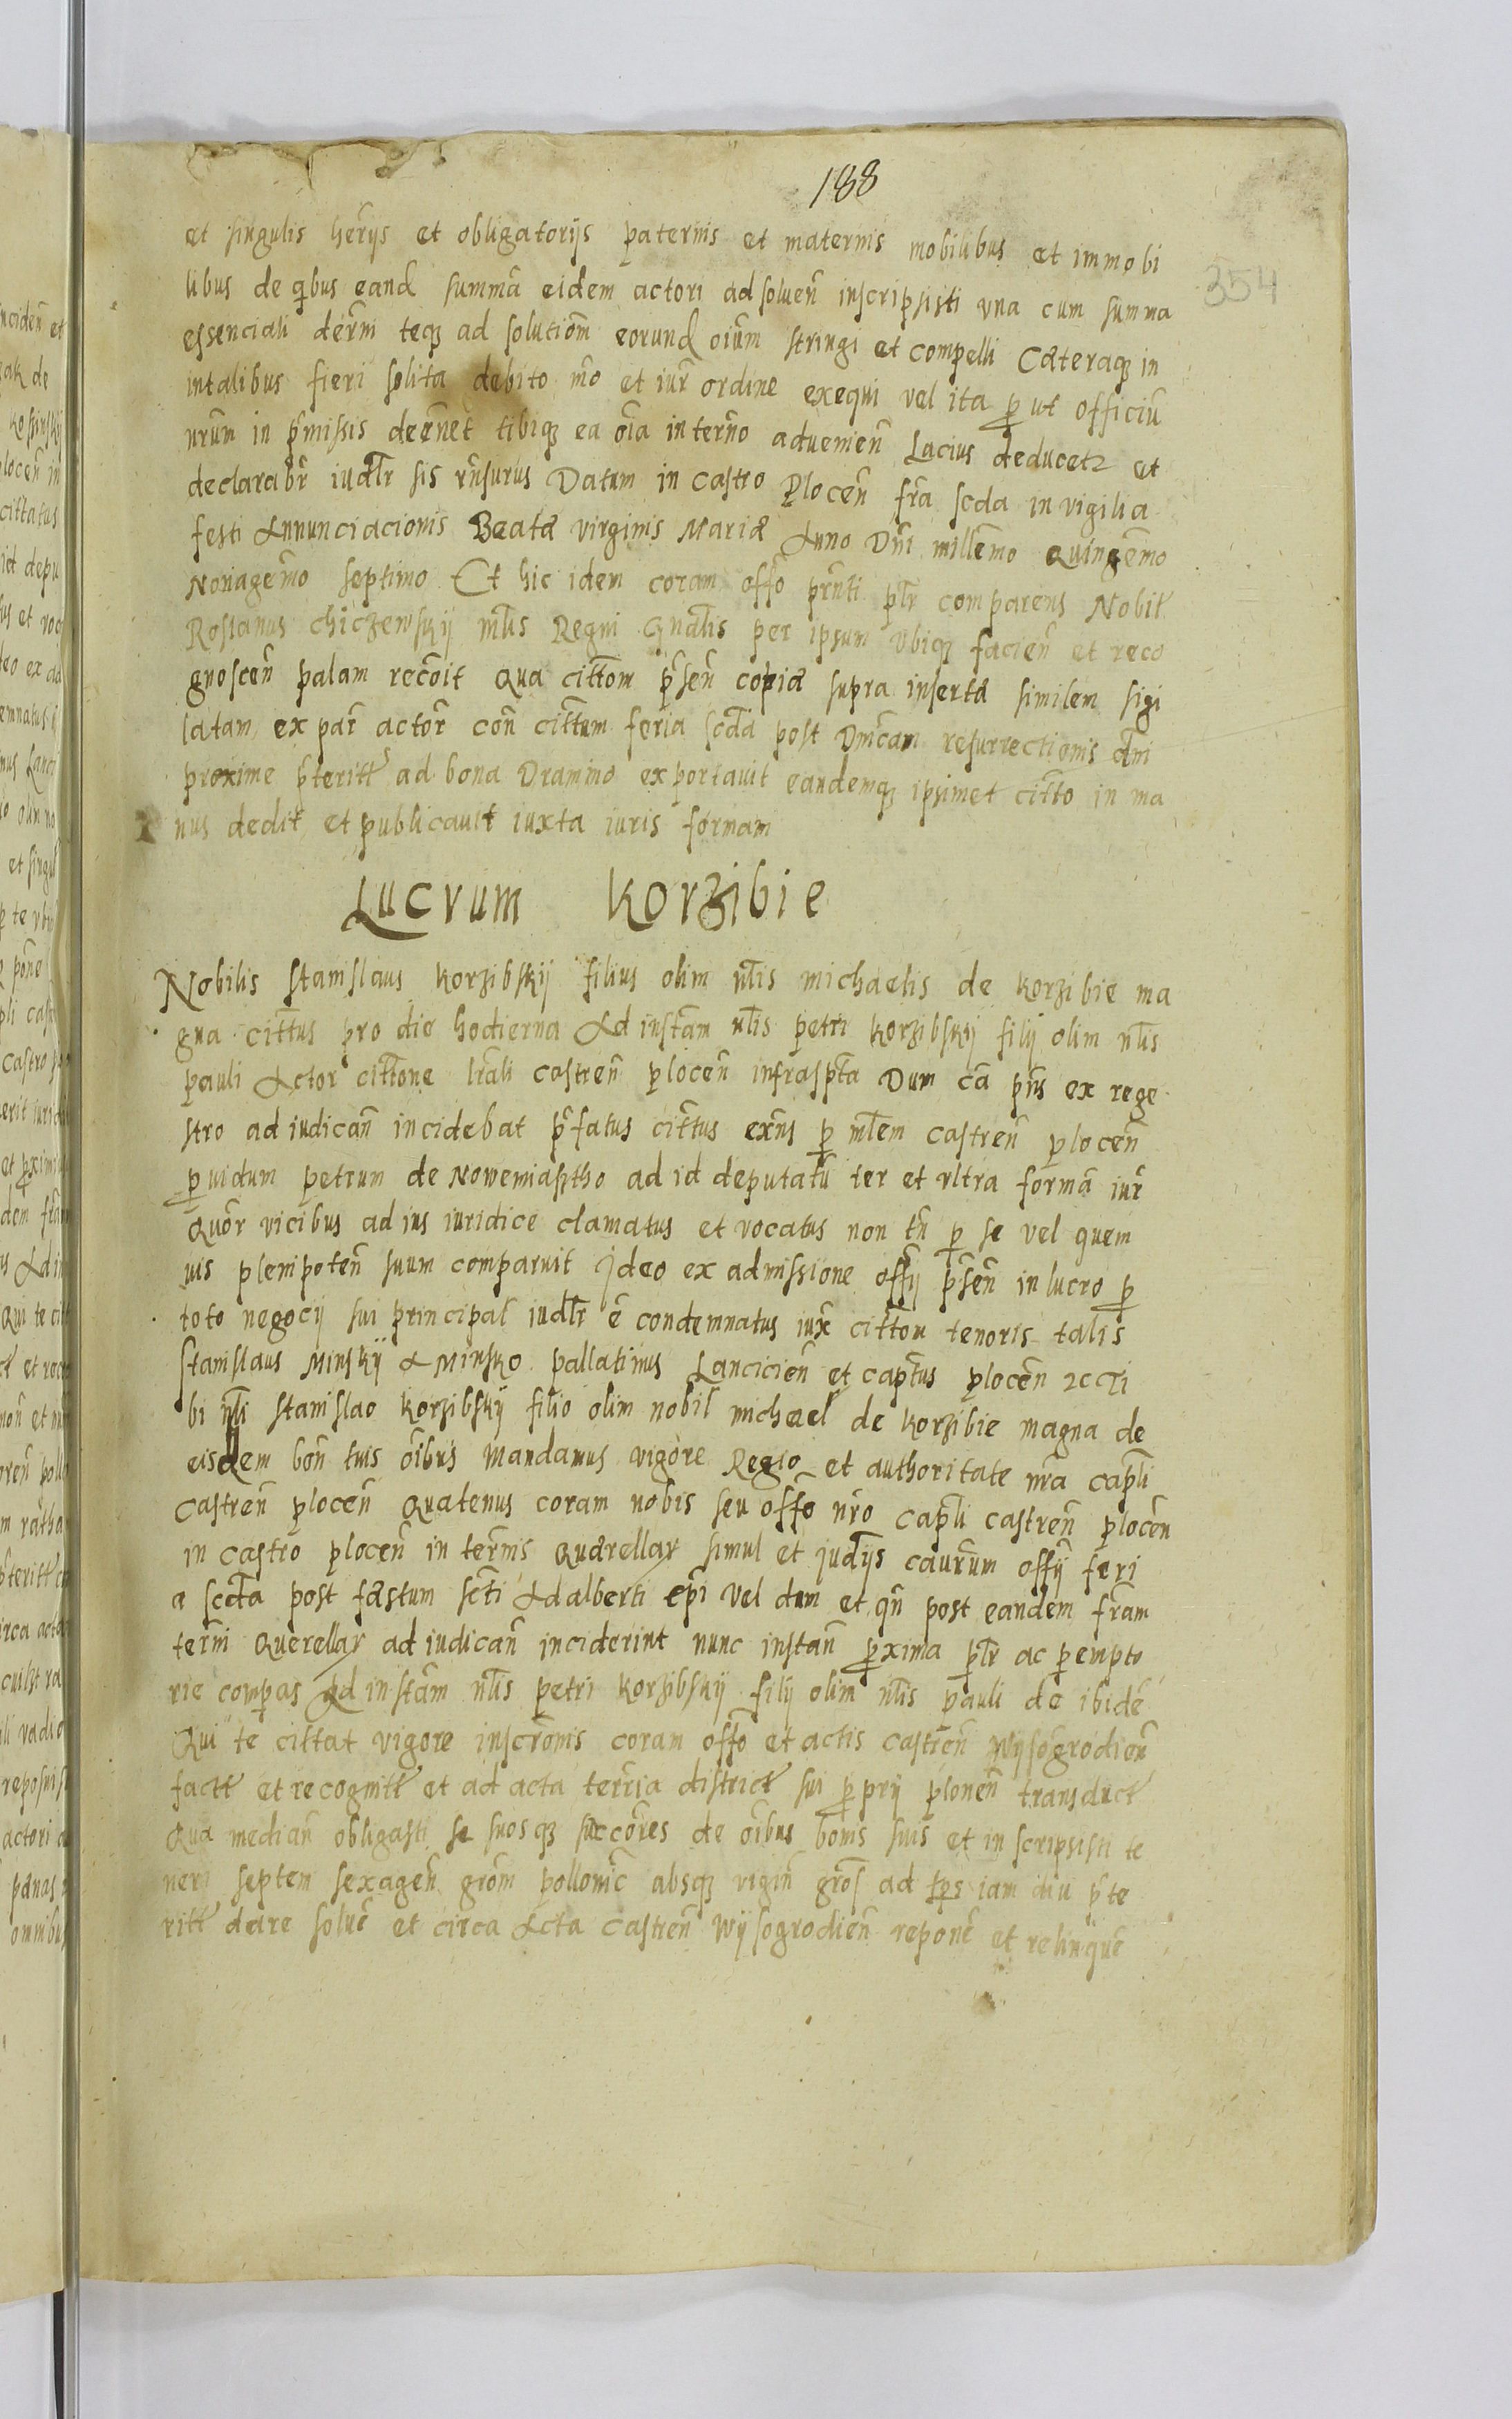 188
354
et singulis herijs et obligatorijs paternis et maternis mobilibus et immobi
libus de qbus eand summã eidem actori ad soluen̄ inscripsisti vna cum summa
essenciali dérm̃i teq; ad solutiom̃ eorund oium̃ stringi et compelli Cæteraq; in
intalibus fieri solita debito m̃o et iur̃ ordine exequi vel ita p ut officiũ
nrũm in p̃missis deen̄et tibiq; ea oĩa in term̃o aduenien̄ Lacius deducetz et
declarabr̃ iudlr̃ sis rn̄surus Datum in castro Plocen̄ fr̃a scda in vigilia
festi Annunciacionis Beatæ virginis Mariæ Anno Dn̄i millem̃o Quingem̃o
Nonagem̃o septimo Et hic idem coram offõ pr̃nti plr̃ comparens Nobil
Roslanus chiczewskij mlis Regni Gn̄alis per ipsum vbiq; facien̄ et reco
gnoscen̄ palam recõit Qua cittom̃ p̃sen̄ copiæ supra insertæ similem sigi
latam ex par̃ actor̃ con̄ cittum feria scda post Dm̃cam resurrectionis dn̄i
proxime p̃teritt ad bona Dramino exportauit eandemq; ipsimet citto in ma
nus dedit et publicauit iuxta iuris formam
Lucrum Korzibie
Nobilis Stanislaus Korzibskij filius olim nlis michaelis de Korzibie ma
gna cittus pro die hodierna Ad instam̃ nlis petri Korzibskij filij olim nlis
pauli Actor cittone lrãli castren̄ plocen̄ infraspta Dum cã pn̄s ex rege
stro ad iudican̄ incidebat p̃fatus cittus exn̄s p mlem castren̄ plocen̄
p uidum petrum de Nowemiastho ad id deputatũ ter et vltra formã iur̃
Quor̃ vicibus ad ius iuridice clamatus et vocatus non tn̄ p se vel quem
uis plenipoten̄ suum comparuit Ideo ex admissione offij p̃sen̄ in lucro p
toto negocij sui principal iudlr̃ ẽ condemnatus iux̃ citton̄ tenoris talis
Stanislaus Minskij A Minsko pallatinus Lancicien̄ et captus plocen̄ Ti
bi nli Stanislao Korzibskij filio olim nobil michael de Korzibie magna de
eisdem bon̄ tuis oĩbus Mandamus vigore Regio et authoritate nrã capli
castren̄ plocen̄ Quatenus coram nobis seu offõ nrõ capli castren̄ plocen̄
in castro plocen̄ in term̃is Quærellar simul et judijs caurum offij feri
a scda post fæstum scti Adalberti epĩ vel dum et qn̄ post eandem fr̃am
term̃i Querellar ad iudican̄ inciderint nunc instan̄ p xima plr̃ ac p empto
rie compas Ad instam̃ nlis petri Korzibskij filij olim nlis pauli de ibidẽ
Qui te cittat vigore inscrõnis coram offõ et actis castren̄ Wysogrodien̄
factt et recognitt et ad acta terr̃ia district sui p prij plonen̄ transduct
Qua median̄ obligasti se suosq; succõres de oĩbus bonis suis et inscripsisti te
neri septem sexagen̄ grom̃ pollonic̃ absq; vigin̄ gros ad tps iam diu p̃te
ritt dare soluẽ et circa Acta castren̄ Wysogrodien̄ reponẽ et relinquẽ